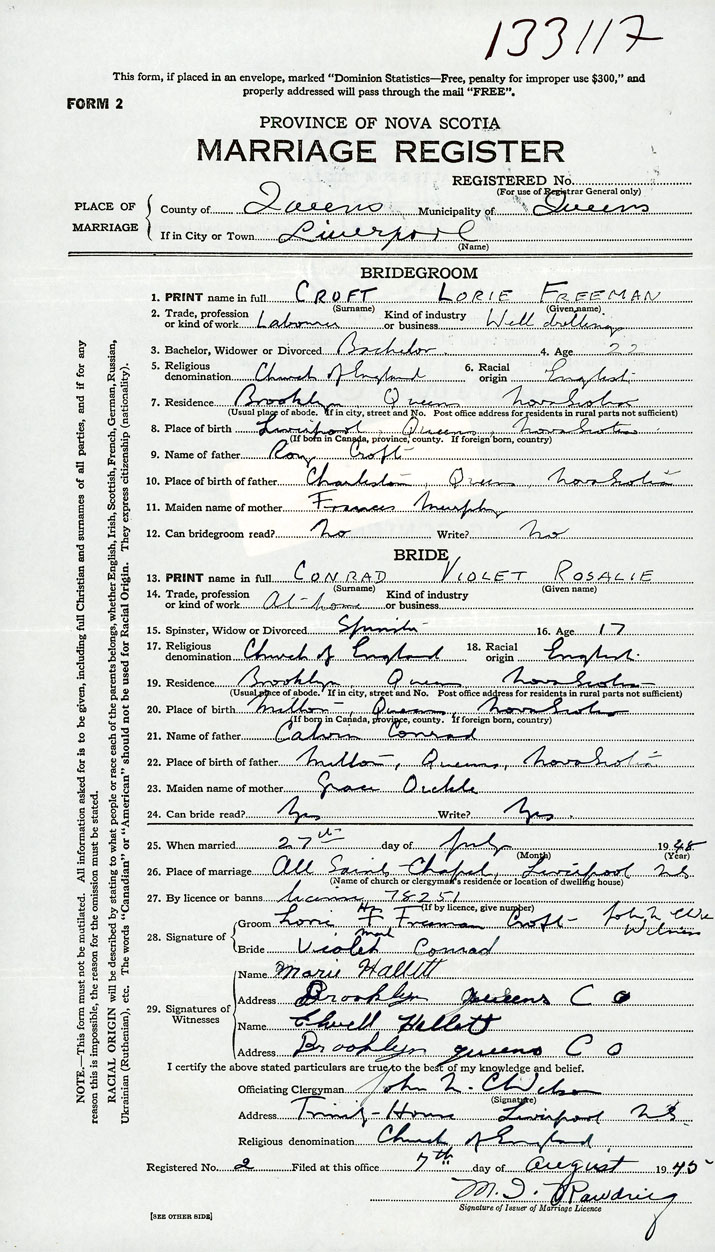 133117
This form, if placed in an envelope, marked "Dominion Statistics—Free, penalty for improper use $300," and
properly addressed will pass through the mail "FREE".
FORM 2
PROVINCE OF NOVA SCOTIA
MARRIAGE REGISTER
REGISTERED No.
(For use of Registrar General only)
PLACE OF MARRIAGE
County of Queens Municipality of Queens
If in City or Town Liverpool
(Name)
BRIDEGROOM
1. PRINT name in full CROFT LORIE FREEMAN
(Surname) (Given name)
2. Trade, profession or kind of work Labourer Kind of industry or business Well drilling
3. Bachelor, Widower or Divorced Bachelor 4. Age 22
5. Religious denomination Church of England 6. Racial origin English
7. Residence Brooklyn, Queens Nova Scotia
(Usual place of abode. If in city, street and No. Post office address for residents in rural parts not sufficient)
8. Place of birth Liverpool, Queens, Nova Scotia
(If born in Canada, province, county. If foreign born, country)
9. Name of father Roy Croft
10. Place of birth of father Charleston, Queens, Nova Scotia
11. Maiden name of mother Frances Murphy
12. Can bridegroom read? No Write? No
BRIDE
13. PRINT name in full CONRAD VIOLET ROSALIE
(Surname) (Given name)
14. Trade, profession or kind of work At-home Kind of industry or business
15. Spinster, Widow or Divorced Spinster 16. Age 17
17. Religious denomination Church of England 18. Racial origin English
19. Residence Brooklyn, Queens Nova Scotia
(Usual place of abode. If in city, street and No. Post office address for residents in rural parts not sufficient)
20. Place of birth Milton, Queens, Nova Scotia
(If born in Canada, province, county. If foreign born, country)
21. Name of father Calvin Conrad
22. Place of birth of father Milton, Queens, Nova Scotia
23. Maiden name of mother Grace
24. Can bride read? Yes Write? Yes.
25. When married 27th day of July 19
(Month) (Year)
26. Place of marriage All Saints Chapel, Liverpool N.S.
(Name of church or clergyman's residence or location of dwelling house)
27. By licence or banns licence 78251
(If by licence, give number)
28. Signature of
Groom Lorie F Freeman Croft John N.
His mark Witness
Bride Violet Conrad
29. Signatures of Witnesses
Name Marie Hallett
Address Brooklyn Queens C O
Name Hallett
Address Brooklyn queens C O
I certify the above stated particulars are true to the best of my knowledge and belief.
Officiating Clergyman John N.
(Signature)
Address Liverpool N.S.
Religious denomination Church of England
Registered No. 2 Filed at this office 7th day of August 1945
M. I. 
Signature of Issuer of Marriage Licence
[SEE OTHER SIDE]
NOTE.—This form must not be mutilated. All information asked for is to be given, including full Christian and surnames of all parties, and if for any
reason this is impossible, the reason for the omission must be stated.
RACIAL ORIGIN will be described by stating to what people or race each of the parents belongs, whether English, Irish, Scottish, French, German, Russian,
Ukrainian (Ruthenian), etc. The words "Canadian" or "American" should not be used for Racial Origin. They express citizenship (nationality).